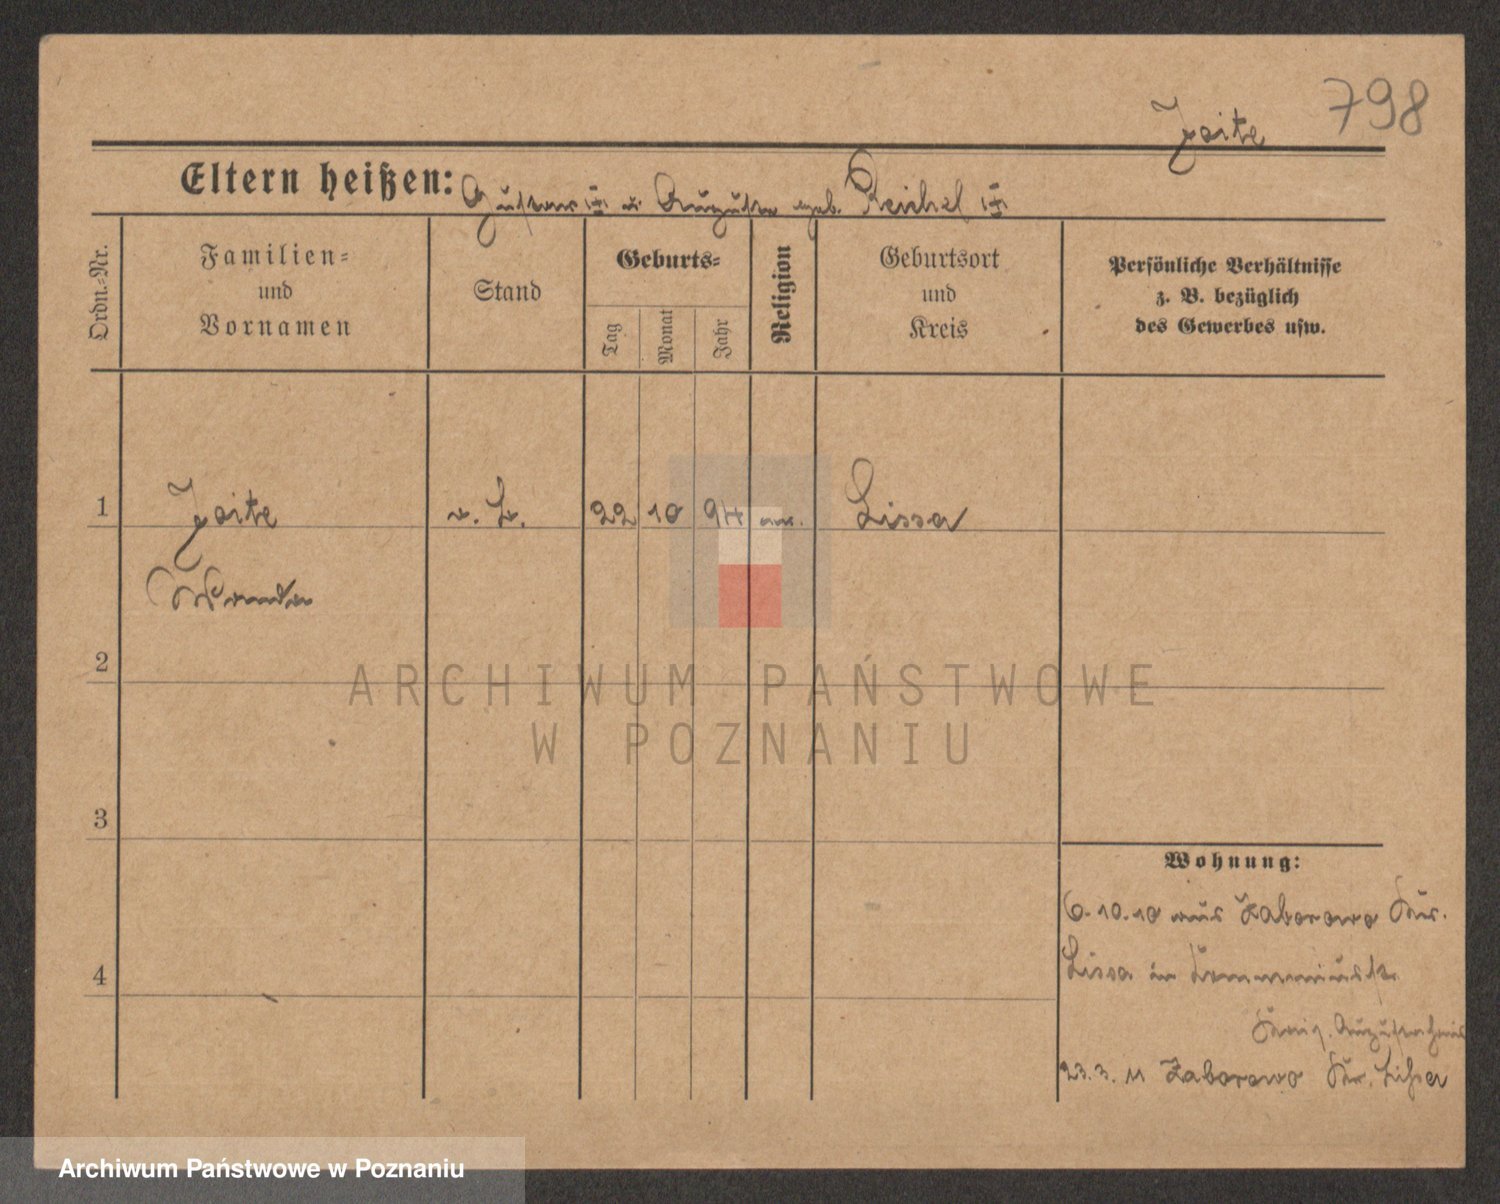 798
Jaite
Eltern heißen: Gustav u. Auguste geb. Reichel
Ordn.-Nr.
Familien-
und
Vornamen
Stand
Geburts-
Tag
Monat
Jahr
Religion
Geburtsort
und
Kreis
Persönliche Verhältnisse
z. B. bezüglich
des Gewerbes usw.
1 Jaite 22 10 94 Lissa
Wanda
2
3
4
Wohnung:
6.10.10 aus Zaborowo Kr.
Lissa in
23.3.11 Zaborowo Kr. Lissa
ARCHIWUM PAŃSTWOWE
W POZNANIU
Archiwum Państwowe w Poznaniu